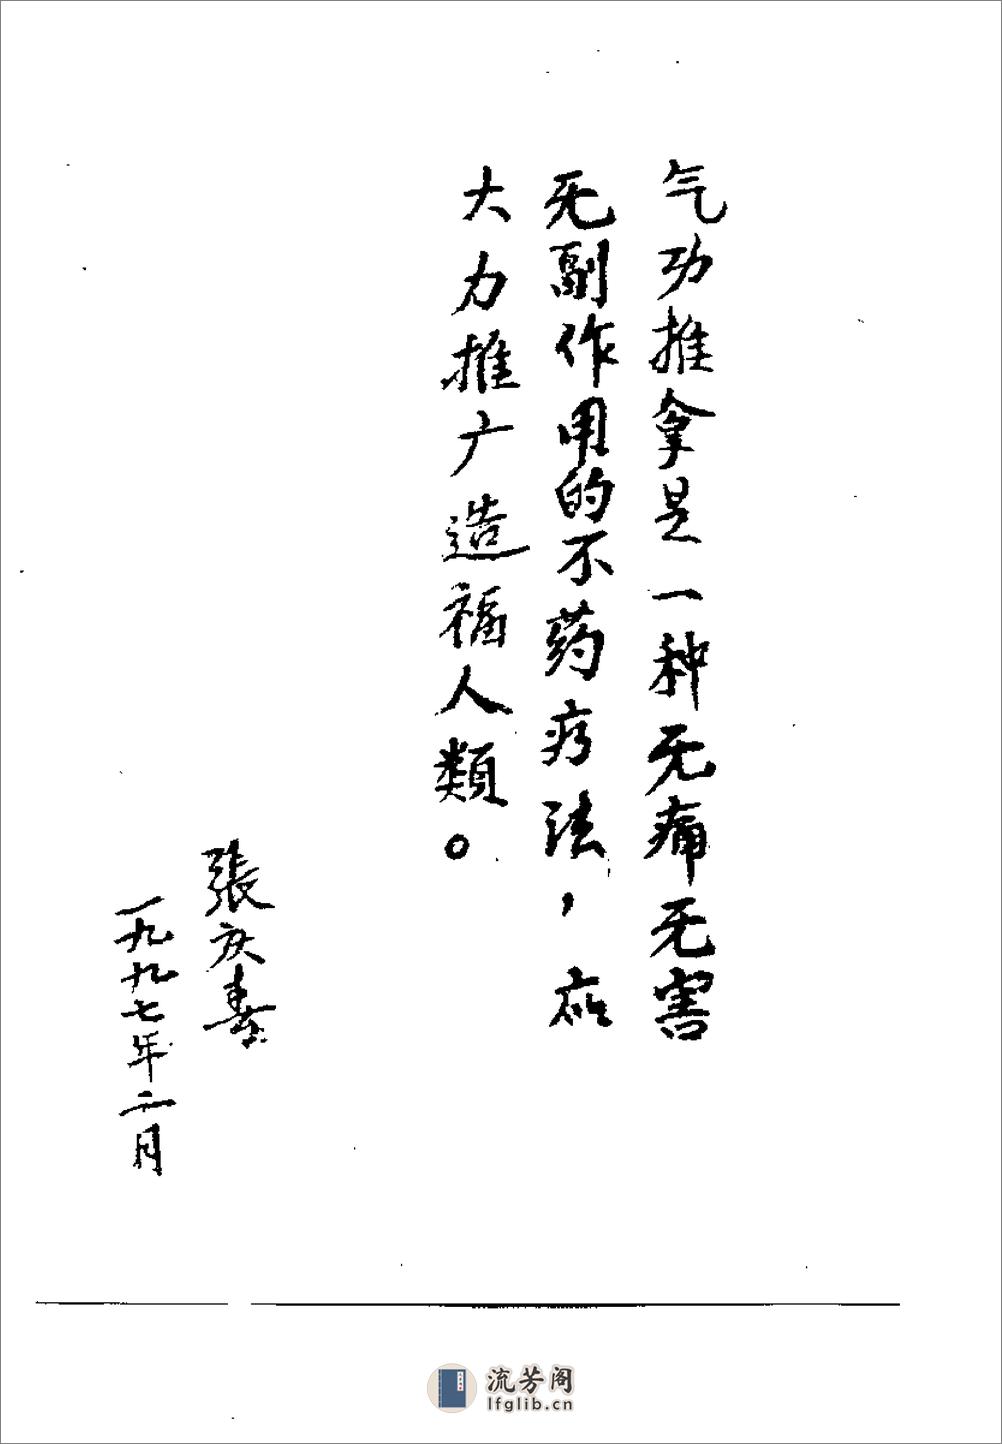 气功推拿是一种无痛无害
无副作用的不药疗法，应
大力推广造福人類。
張庆泰
一九九七年二月
流芳阁
lfglib.cn